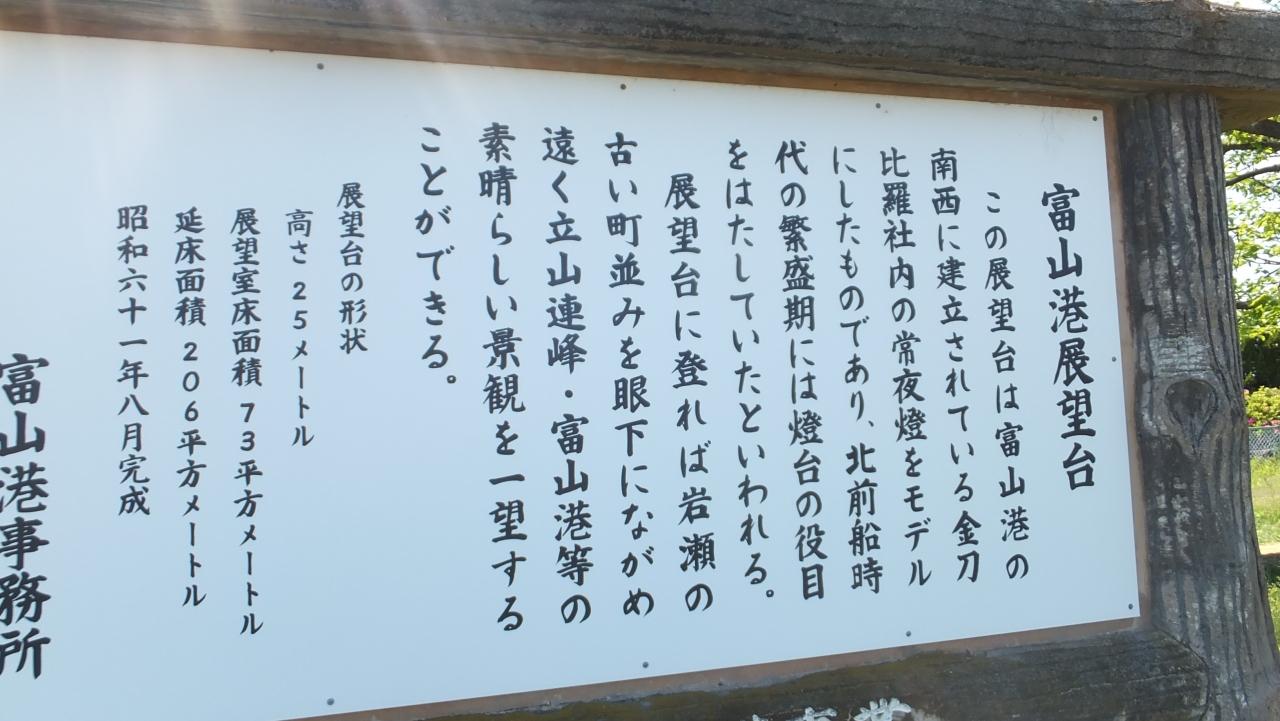 富山港展望台
この展望台は富山港の
南西に建立されている金刀
比羅社内の常夜燈をモデル
にしたものであり、北前船時
代の繁盛期には燈台の役目
をはたしていたといわれる。
展望台に登れば岩瀬の
古い町並みを眼下にながめ
遠く立山連峰・富山港等の
素晴らしい景観を一望する
ことができる。
展望台の形状
高さ 25メートル
展望室床面積 73平方メートル
延床面積 206平方メートル
昭和六十一年八月完成
富山港事務所